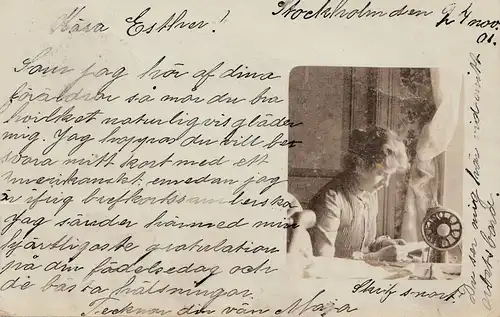 Stockholm den 24 nov.
01.
Kära Esther!
Som jag hör af dina
föräldrar så mår du bra
hvilket naturligvis gläder
mig. Jag hoppas du vill be-
svara mitt kort med ett
emedan jag
är ifrig brefkortssamlerska
Jag sänder härmed min
hjärtligaste gratulation
på din födelsedag och
de bästa hälsningar.
Tecknar din vän Maja
Skrif snart.
Du ser mig här vid mitt
arbetsbord